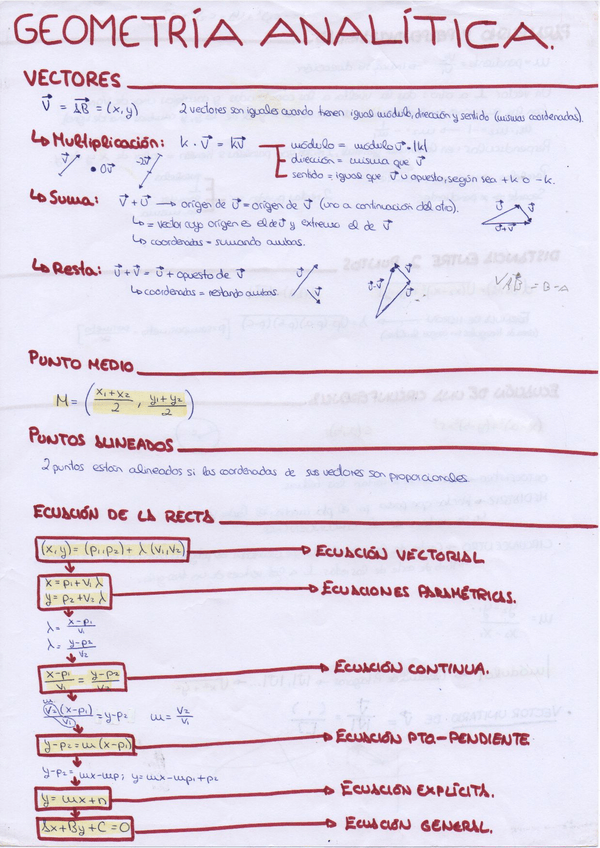 GEOMETRÍA ANALÍTICA.
VECTORES
v⃗ = AB⃗ = (x, y) 2 vectores son iguales cuando tienen igual módulo, dirección y sentido (mismas coordenadas).
↳ Multiplicación: k · v⃗ = kv⃗ módulo = módulo v⃗ · |k|
dirección = misma que v⃗
sentido = igual que v⃗ u opuesto, según sea +k o -k.
v⃗ • 0v⃗ -2v⃗
↳ Suma: v⃗ + u⃗ → origen de u⃗ = origen de v⃗ (uno a continuación del otro).
↳ = vector cuyo origen es el de v⃗ y extremo el de v⃗
↳ coordenadas = sumando ambas.
v⃗ u⃗ u⃗+v⃗
↳ Resta: u⃗ + v⃗ = u⃗ + opuesto de v⃗
↳ coordenadas = restando ambas.
AB⃗ = B-A
PUNTO MEDIO
M = (x₁+x₂/2 , y₁+y₂/2)
PUNTOS ALINEADOS
2 puntos están alineados si las coordenadas de sus vectores son proporcionales
ECUACIÓN DE LA RECTA
(x, y) = (p₁, p₂) + λ (v₁, v₂) → ECUACIÓN VECTORIAL
x = p₁ + v₁ λ
y = p₂ + v₂ λ → ECUACIONES PARAMÉTRICAS.
λ = x-p₁/v₁
λ = y-p₂/v₂
x-p₁/v₁ = y-p₂/v₂ → ECUACIÓN CONTINUA.
m
v₂(x-p₁)/v₁ = y-p₂ m = v₂/v₁
y-p₂ = m(x-p₁) → ECUACIÓN PTO-PENDIENTE
y-p₂ = mx-mp₁; y = mx-mp₁+p₂
y = mx+n → ECUACIÓN EXPLÍCITA.
Ax+By+C=0 → ECUACIÓN GENERAL.